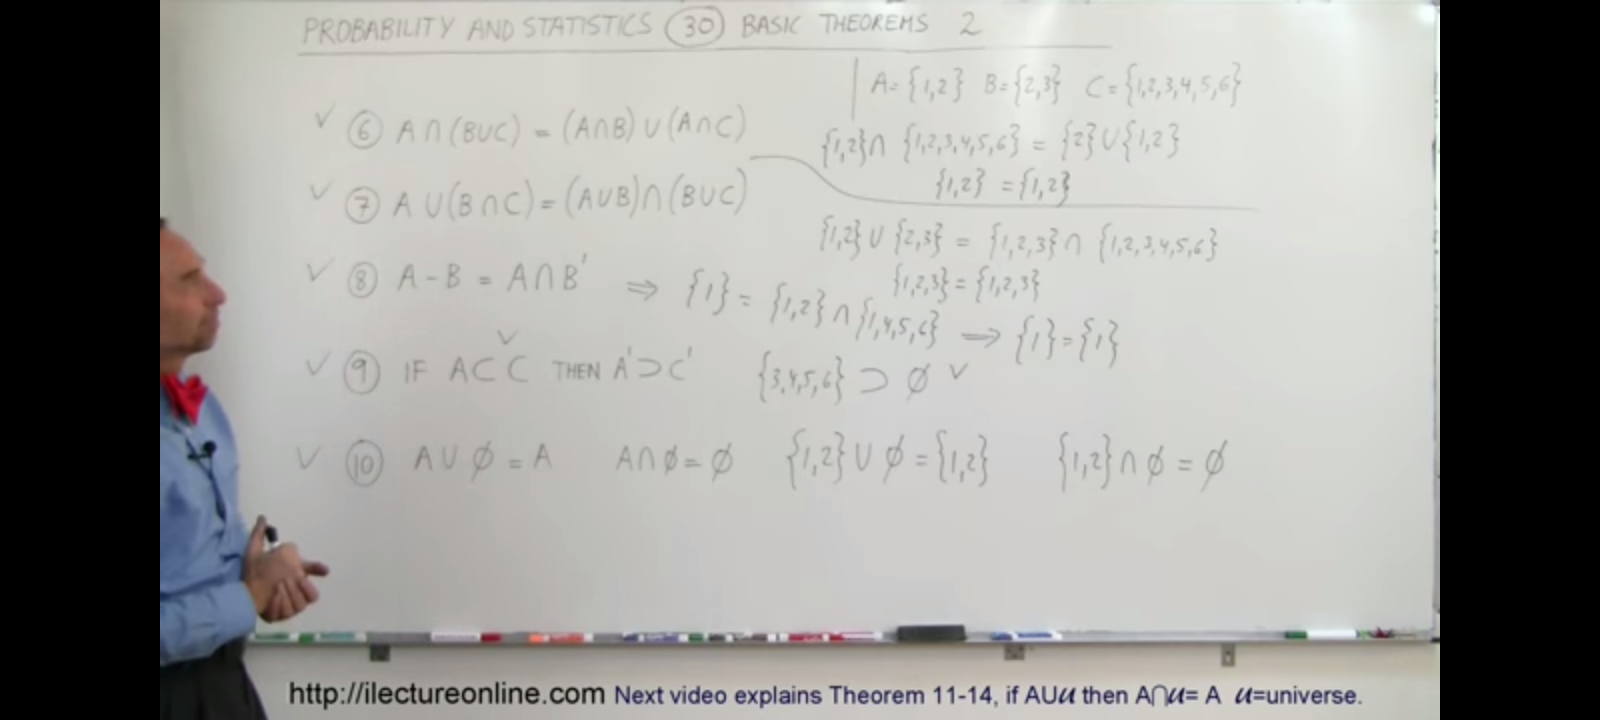 PROBABILITY AND STATISTICS 30 BASIC THEOREMS 2
A={1,2} B={2,3} C={1,2,3,4,5,6}
✓ 6 A∩(B∪C) = (A∩B)∪(A∩C)
{1,2}∩ {1,2,3,4,5,6} = {2}∪{1,2}
{1,2} = {1,2}
✓ 7 A∪(B∩C) = (A∪B)∩(B∪C)
{1,2}∪{2,3} = {1,2,3}∩ {1,2,3,4,5,6}
{1,2,3} = {1,2,3}
✓ 8 A-B = A∩B' ⇒ {1} = {1,2}∩{1,4,5,6} ⇒ {1}={1}
✓ 9 IF A⊂C ✓ THEN A'⊃C' {3,4,5,6} ⊃ ∅ ✓
✓ 10 A∪∅=A A∩∅=∅ {1,2}∪∅={1,2} {1,2}∩∅=∅
http://ilectureonline.com Next video explains Theorem 11-14, if AU𝓊 then A∩𝓊= A 𝓊=universe.